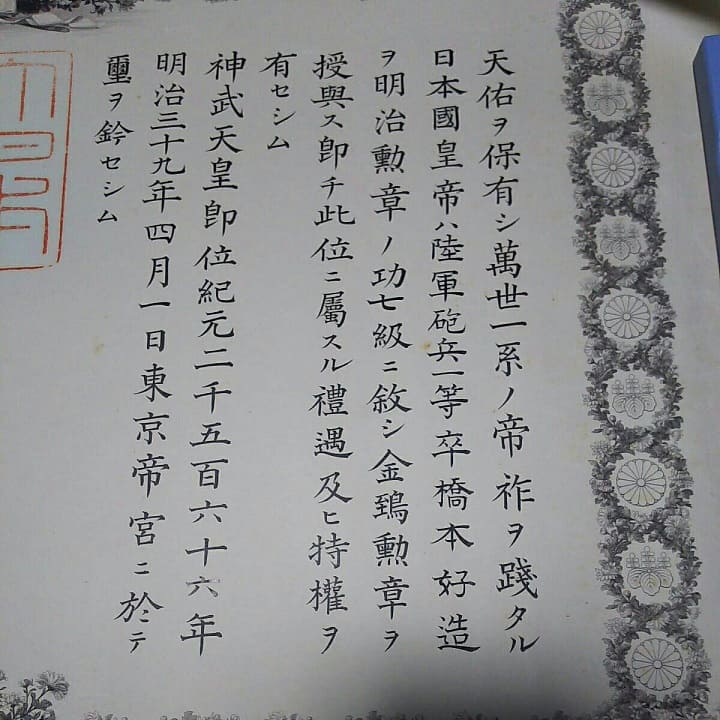 天佑ヲ保有シ萬世一系ノ帝祚ヲ踐タル
日本國皇帝ハ陸軍砲兵一等卒橋本好造
ヲ明治勲章ノ功七級ニ敘シ金鵄勲章ヲ
授與ス卽チ此位ニ屬スル禮遇及ヒ特權ヲ
有セシム
神武天皇卽位紀元二千五百六十六年
明治三十九年四月一日東京帝宮ニ於テ
璽ヲ鈐セシム